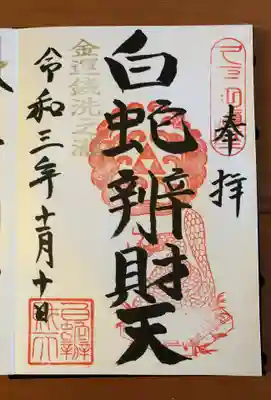 奉拝
白蛇辨財天
金運銭洗之滝
令和三年十一月十日